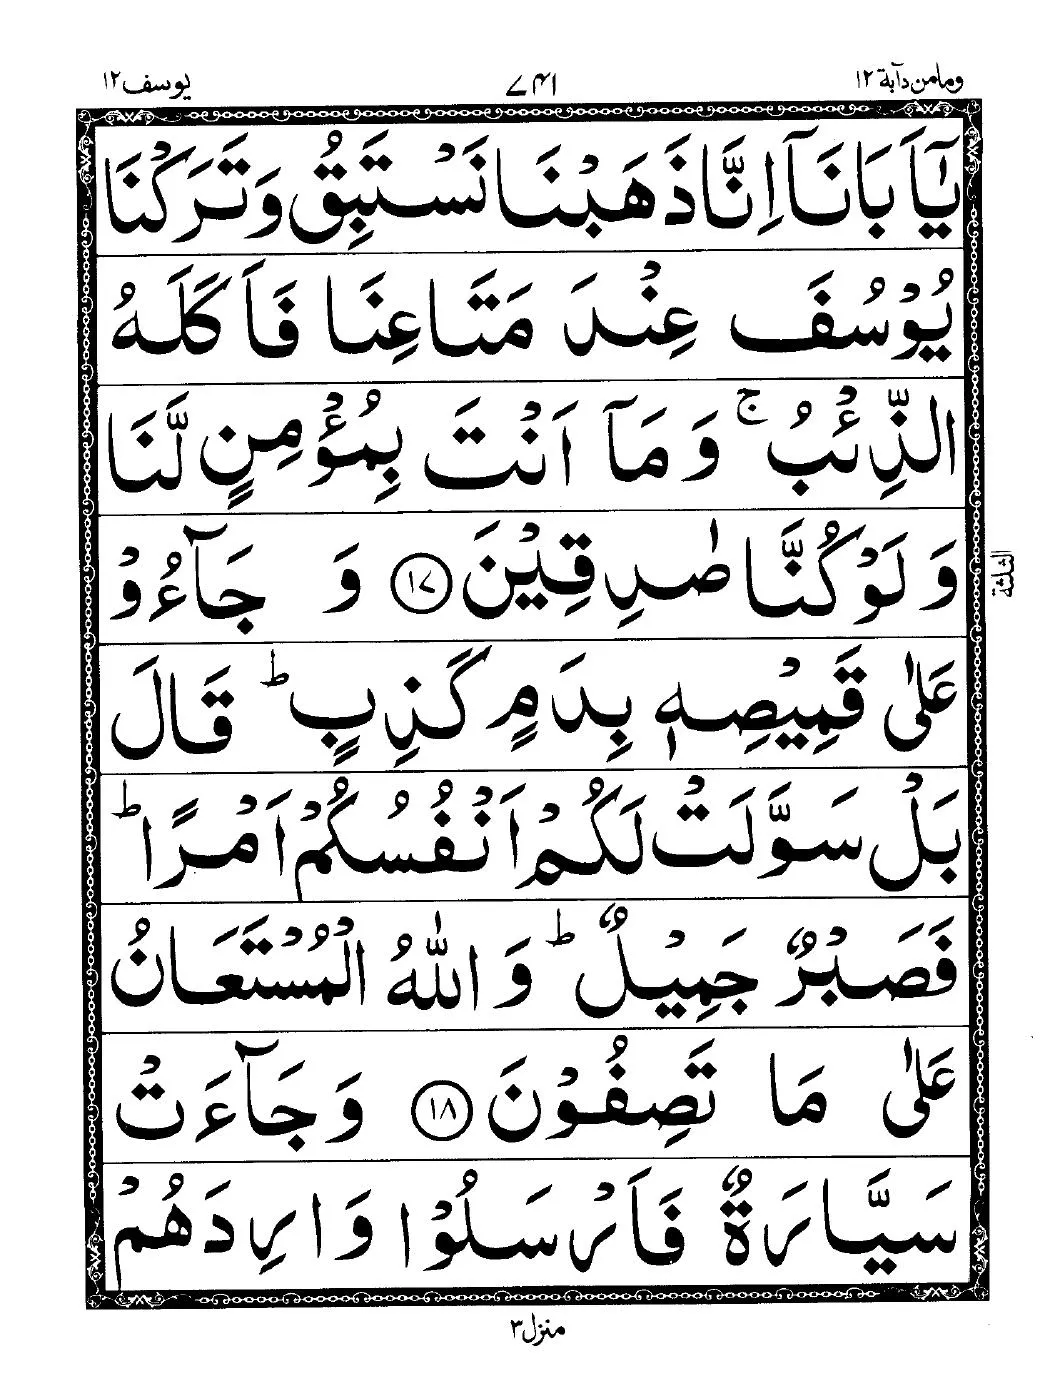 وما من دآبة ١٢
٧٤١
يوسف ١٢
يٰۤاَبَانَاۤ اِنَّا ذَهَبْنَا نَسْتَبِقُ وَتَرَكْنَا
يُوْسُفَ عِنْدَ مَتَاعِنَا فَاَكَلَهُ
الذِّئْبُ ۚ وَمَاۤ اَنْتَ بِمُؤْمِنٍ لَّنَا
وَلَوْ كُنَّا صٰدِقِيْنَ ١٧ وَ جَآءُوْ
عَلٰى قَمِيْصِهٖ بِدَمٍ كَذِبٍ ؕ قَالَ
بَلْ سَوَّلَتْ لَكُمْ اَنْفُسُكُمْ اَمْرًا ؕ
فَصَبْرٌ جَمِيْلٌ ؕ وَ اللّٰهُ الْمُسْتَعَانُ
عَلٰى مَا تَصِفُوْنَ ١٨ وَجَآءَتْ
سَيَّارَةٌ فَاَرْسَلُوْا وَارِدَهُمْ
الثلثة
منزل ٣